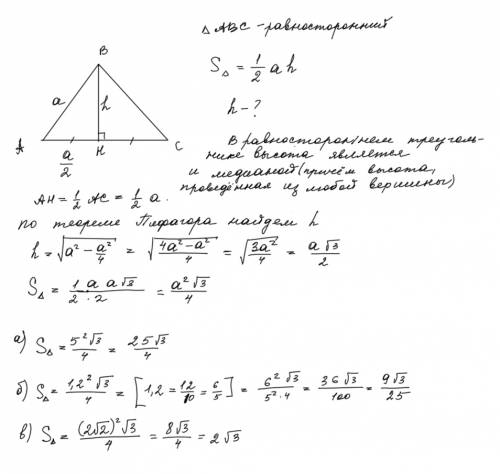 △ABC - равносторонний
S△ = 1/2 a h
h - ?
B
a
h
A
a/2
H
C
В равностороннем треуголь-
нике высота является
и медианой (причём высота,
проведённая из любой вершины)
AH = 1/2 AC = 1/2 a.
по теореме Пифагора найдем h
h = √(a² - a²/4) = √((4a² - a²)/4) = √(3a²/4) = a√3/2
S△ = (1 a a√3)/(2 · 2) = a²√3/4
а) S△ = 5²√3/4 = 25√3/4
б) S△ = 1,2²√3/4 = [1,2 = 12/10 = 6/5] = 6²√3/(5²·4) = 36√3/100 = 9√3/25
в) S△ = (2√2)²√3/4 = 8√3/4 = 2√3